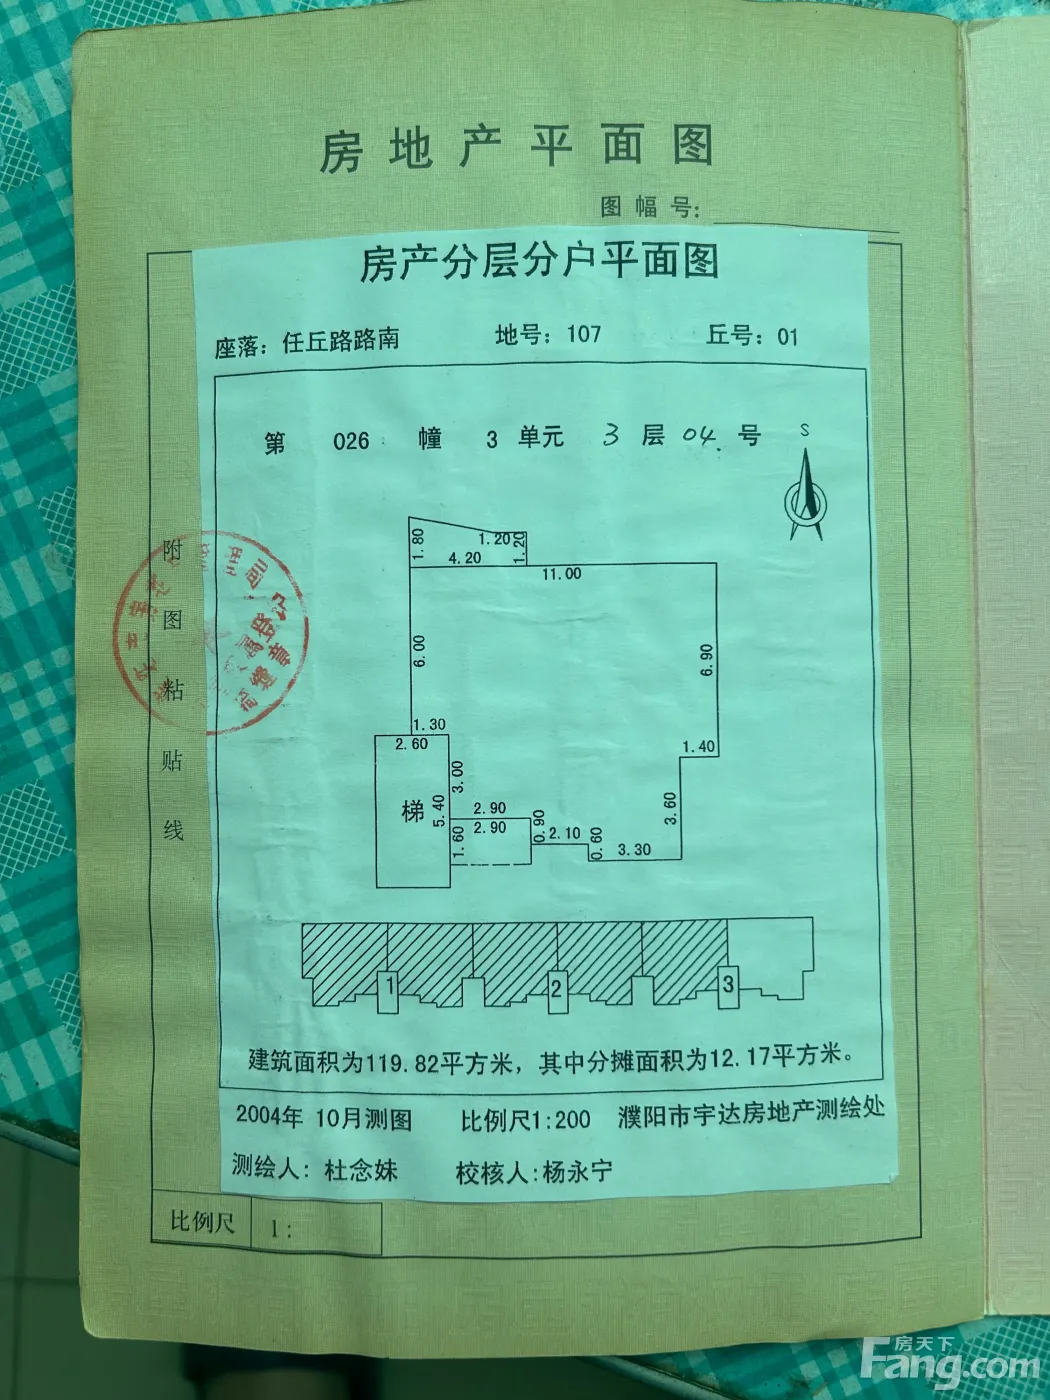 房地产平面图
图幅号:
房产分层分户平面图
座落: 任丘路路南 地号: 107 丘号: 01
第 026 幢 3 单元 3 层 04 号
S
1.80
1.20
1.20
4.20
11.00
6.00
6.90
1.30
2.60
1.40
3.00
5.40
梯
2.90
2.90
0.90
1.60
2.10
0.60
3.60
3.30
1
2
3
建筑面积为119.82平方米，其中分摊面积为12.17平方米。
2004年 10月测图 比例尺1:200 濮阳市宇达房地产测绘处
测绘人: 杜念妹 校核人:杨永宁
附图粘贴线
比例尺 1:
房天下
Fang.com